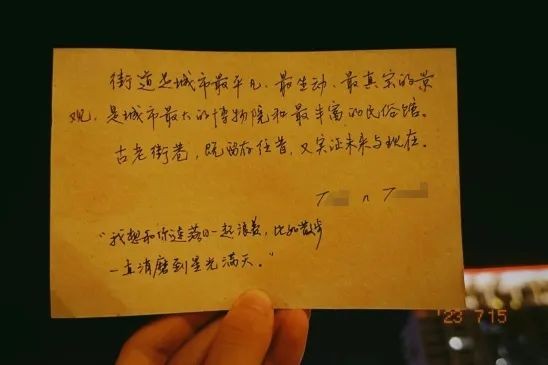 街道是城市最平凡、最生动、最真实的景
观，是城市最大的博物院和最丰富的民俗馆。
古老街巷，既留存往昔，又实证未来与现在。
T n T
“我想和你连落日一起浪费，比如散步
一直消磨到星光满天。”
'23 7 15